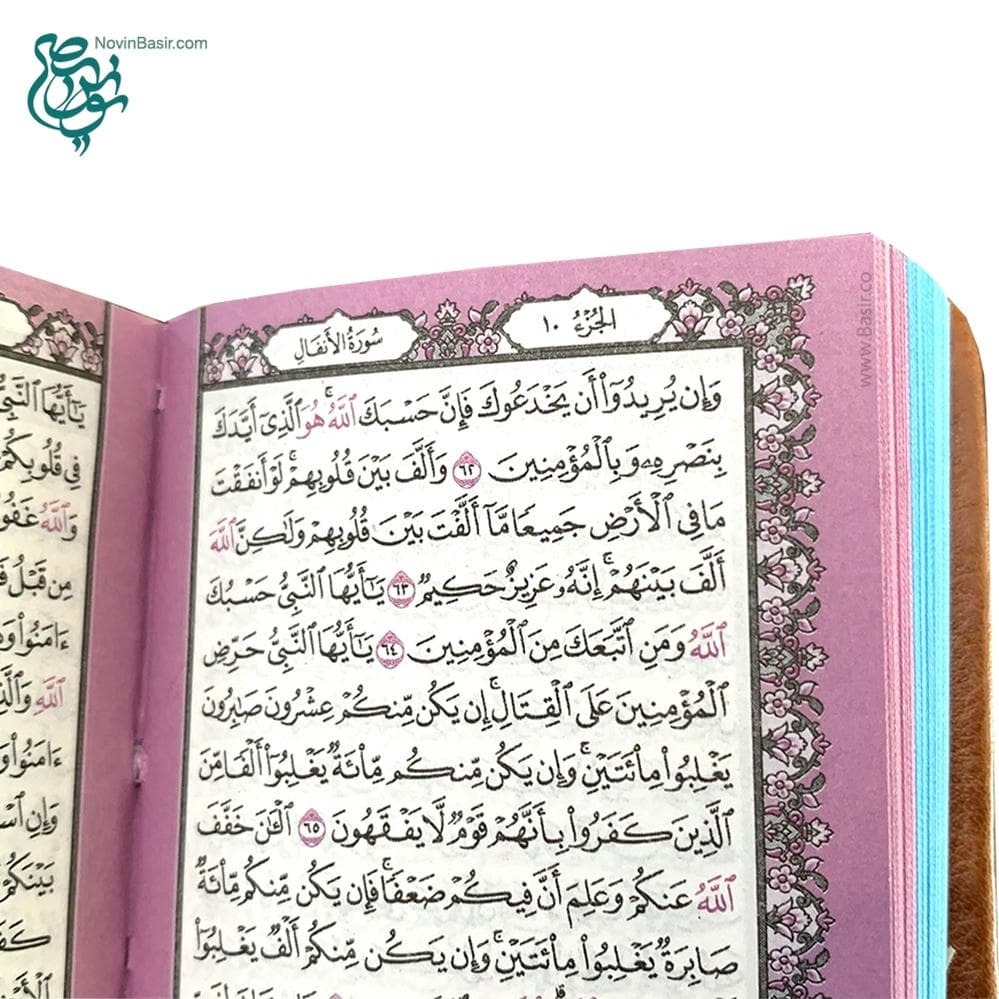 NovinBasir.com
الجزء ١٠
سورة الأنفال
وَإِن يُرِيدُوٓا۟ أَن يَخْدَعُوكَ فَإِنَّ حَسْبَكَ ٱللَّهُ ۚ هُوَ ٱلَّذِىٓ أَيَّدَكَ
بِنَصْرِهِۦ وَبِٱلْمُؤْمِنِينَ ٦٢ وَأَلَّفَ بَيْنَ قُلُوبِهِمْ ۚ لَوْ أَنفَقْتَ
مَا فِى ٱلْأَرْضِ جَمِيعًا مَّآ أَلَّفْتَ بَيْنَ قُلُوبِهِمْ وَلَـٰكِنَّ ٱللَّهَ
أَلَّفَ بَيْنَهُمْ ۚ إِنَّهُۥ عَزِيزٌ حَكِيمٌ ٦٣ يَـٰٓأَيُّهَا ٱلنَّبِىُّ حَسْبُكَ
ٱللَّهُ وَمَنِ ٱتَّبَعَكَ مِنَ ٱلْمُؤْمِنِينَ ٦٤ يَـٰٓأَيُّهَا ٱلنَّبِىُّ حَرِّضِ
ٱلْمُؤْمِنِينَ عَلَى ٱلْقِتَالِ ۚ إِن يَكُن مِّنكُمْ عِشْرُونَ صَـٰبِرُونَ
يَغْلِبُوا۟ مِا۟ئَتَيْنِ ۚ وَإِن يَكُن مِّنكُم مِّا۟ئَةٌ يَغْلِبُوٓا۟ أَلْفًا مِّنَ
ٱلَّذِينَ كَفَرُوا۟ بِأَنَّهُمْ قَوْمٌ لَّا يَفْقَهُونَ ٦٥ ٱلْـَٔـٰنَ خَفَّفَ
ٱللَّهُ عَنكُمْ وَعَلِمَ أَنَّ فِيكُمْ ضَعْفًا ۚ فَإِن يَكُن مِّنكُم مِّا۟ئَةٌ
صَابِرَةٌ يَغْلِبُوا۟ مِا۟ئَتَيْنِ ۚ وَإِن يَكُن مِّنكُمْ أَلْفٌ يَغْلِبُوٓا۟
يَـٰٓأَيُّهَا ٱلنَّبِىُّ
فِى قُلُوبِكُمْ
وَٱللَّهُ
مِن قَبْلُ
ءَامَنُوا۟
ٱللَّهِ
ءَامَنُوا۟
وَإِنِ
بَيْنَكُمْ
www.Basir.co